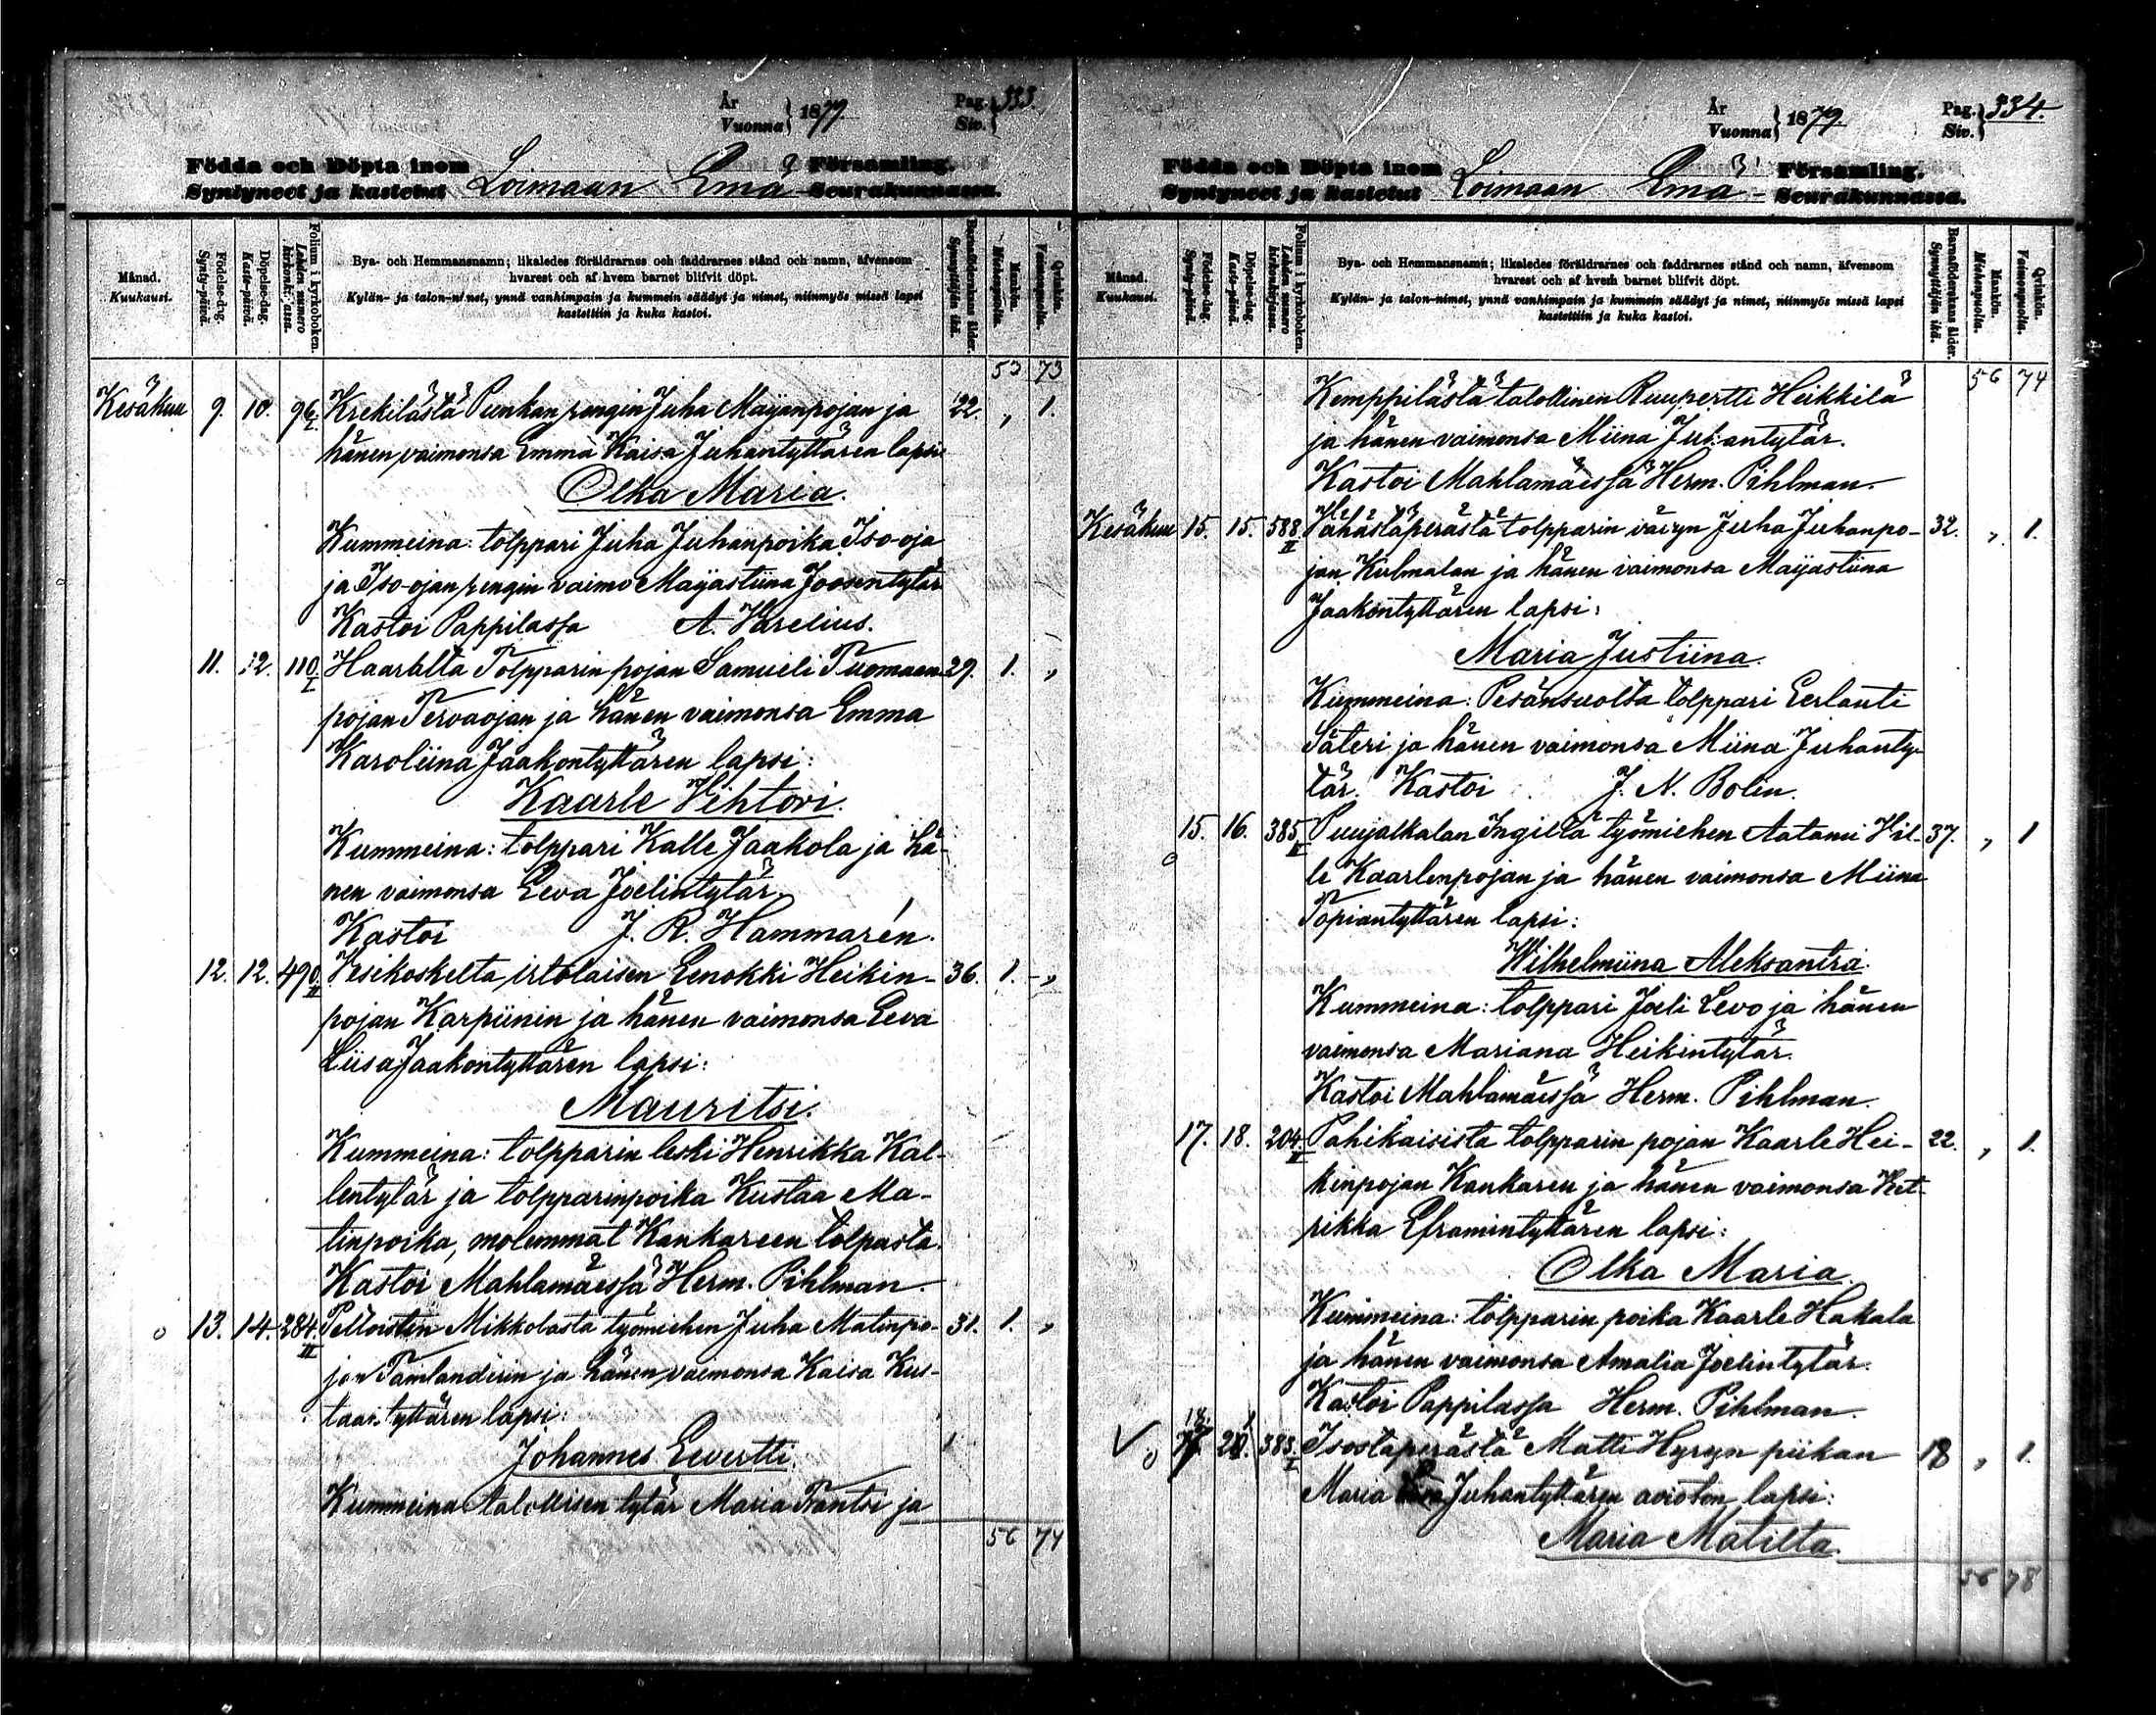 År
Vuonna } 1879.
Pag.
Siv. } 333.
Födda och Döpta inom
Syntyneet ja kastetut Loimaan Emä Församling.
Seurakunnassa.
Månad.
Kuukausi.
Födelse-dag.
Synty-päivä.
Döpelse-dag.
Kaste-päivä.
Folium i kyrkoboken.
Lehden numero
kirkonkirjassa.
Bya- och Hemmansnamn; likaledes föräldrarnes och faddrarnes stånd och namn, äfvensom
hvarest och af hvem barnet blifvit döpt.
Kylän- ja talon-nimet, ynnä vanhimpain ja kummein säädyt ja nimet, niinmyös missä lapsi
kastettiin ja kuka kastoi.
Barnaföderskans ålder.
Synnyttäjän ikä.
Mankön.
Miehenpuolia.
Qvinkön.
Vaimonpuolia.
53 73
Kesäkuu 9. 10. 96 I Krekilästä Punkan rengin Juha Maijanpojan ja 22. „ 1.
hänen vaimonsa Emma Kaisa Juhantyttären lapsi
Olka Maria.
Kummeina: tolppari Juha Juhanpoika Iso-oja
ja Iso-ojan rengin vaimo Maijastiina Joosentytär
Kastoi Pappilassa A. Varelius.
11. 12. 110 I Haaralta Tolpparin pojan Samueli Tuomaan- 29. 1. „
pojan Tervaojan ja hänen vaimonsa Emma
Karoliina Jaakontyttären lapsi:
Kaarle Vihtori.
Kummeina: tolppari Kalle Jaakola ja hä-
nen vaimonsa Eeva Joelintytär
Kastoi J. R. Hammarén.
12. 12. 490 II Vesikoskelta irtolaisen Eenokki Heikin- 36. 1. „
pojan Karpiinin ja hänen vaimonsa Eeva
Liisa Jaakontyttären lapsi:
Mauritsi.
Kummeina: tolpparin leski Henrikka Kal-
lentytär ja tolpparinpoika Kustaa Ma-
tinpoika, molemmat Kankareen tolpasta.
Kastoi Mahlamäessä Herm. Pihlman.
13. 14. 284. III Pelloisten Mikkolasta työmiehen Juha Matinpo- 31. 1. „
jan Tamlanderin ja hänen vaimonsa Kaisa Kus-
taantyttären lapsi:
Johannes Eevertti.
Kummeina talollisen tytär Maria Frantsi ja
56 74
År
Vuonna } 1879.
Pag.
Siv. } 334.
Födda och Döpta inom
Syntyneet ja kastetut Loimaan Emä- Församling.
Seurakunnassa.
Månad.
Kuukausi.
Födelse-dag.
Synty-päivä.
Döpelse-dag.
Kaste-päivä.
Folium i kyrkoboken.
Lehden numero
kirkonkirjassa.
Bya- och Hemmansnamn; likaledes föräldrarnes och faddrarnes stånd och namn, äfvensom
hvarest och af hvem barnet blifvit döpt.
Kylän- ja talon-nimet, ynnä vanhimpain ja kummein säädyt ja nimet, niinmyös missä lapsi
kastettiin ja kuka kastoi.
Barnaföderskans ålder.
Synnyttäjän ikä.
Mankön.
Miehenpuolia.
Qvinkön.
Vaimonpuolia.
56 74
Kemppilästä talollinen Ruupertti Heikkilä
ja hänen vaimonsa Miina Juhantytär.
Kastoi Mahlamäessä Herm. Pihlman.
Kesäkuu 15. 15. 588 II Vähästäperästä tolpparin vävyn Juha Juhanpo- 32. „ 1.
jan Kulmalan ja hänen vaimonsa Maijastiina
Jaakontyttären lapsi:
Maria Justiina.
Kummeina: Pesänsuolta tolppari Eerlanti
Säteri ja hänen vaimonsa Miina Juhanty-
tär. Kastoi J. N. Bolin.
15. 16. 385 II Puujalkalan Ingilta työmiehen Aatami Vil- 37. „ 1
le Kaarlenpojan ja hänen vaimonsa Miina
Topiantyttären lapsi:
Wilhelmiina Aleksantra.
Kummeina: tolppari Joeli Levo ja hänen
vaimonsa Mariana Heikintytär.
Kastoi Mahlamäessä Herm. Pihlman.
17. 18. 204. II Pahikaisista tolpparin pojan Kaarle Hei- 22. „ 1.
kinpojan Kankaren ja hänen vaimonsa
Eframintyttären lapsi:
Olka Maria.
Kummeina: tolpparin poika Kaarle Hakala
ja hänen vaimonsa Amalia Joelintytär.
Kastoi Pappilassa Herm. Pihlman.
383. I Isostaperästä Matti Hyryn piikan 18 „ 1.
Maria Juhantyttären avioton lapsi:
Maria Matilta.
56 78